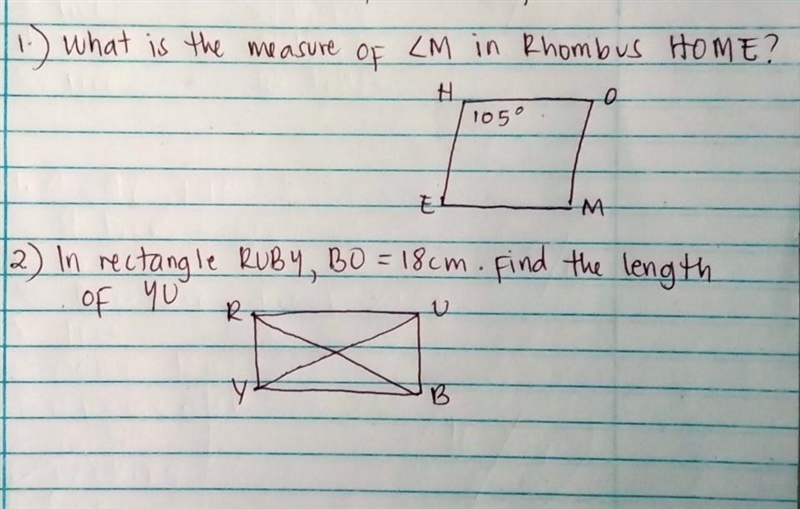 1.) What is the measure of ∠M in Rhombus HOME?
H O
105°
E M
2) In rectangle RUBY, BO = 18cm. Find the length
of YU
R U
Y B